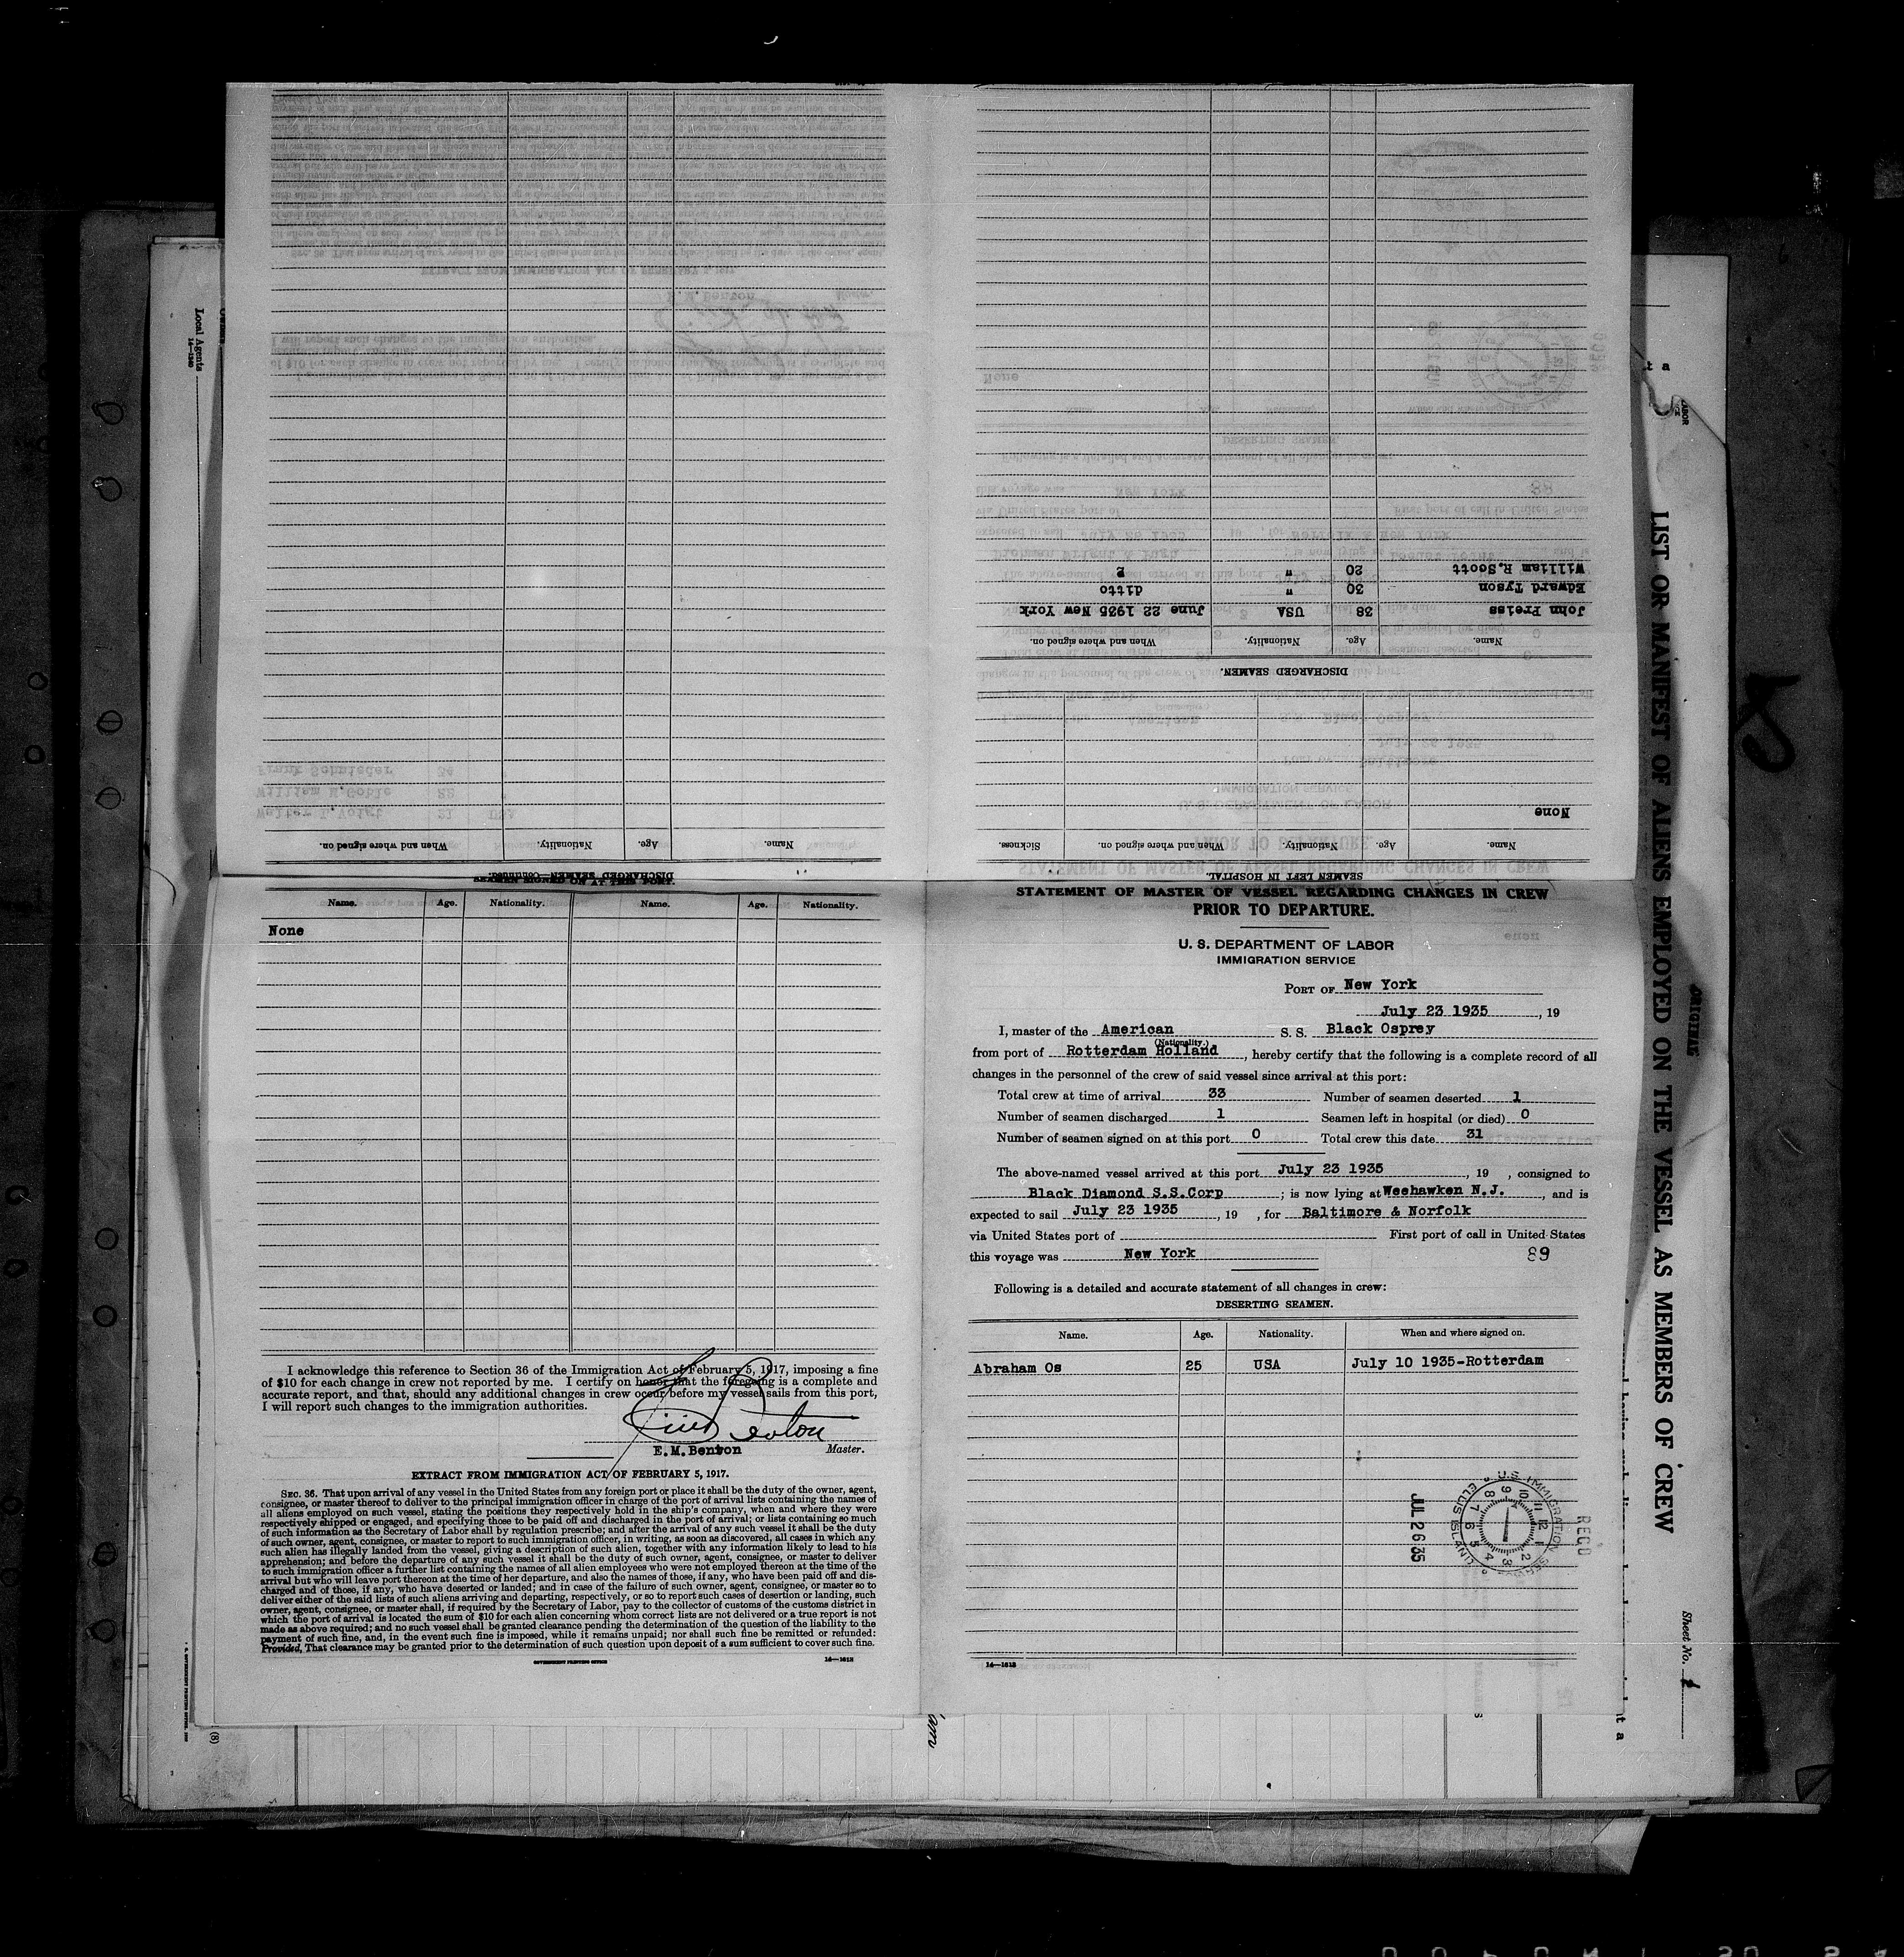 STATEMENT OF MASTER OF VESSEL REGARDING CHANGES IN CREW
PRIOR TO DEPARTURE.
U. S. DEPARTMENT OF LABOR
IMMIGRATION SERVICE
PORT OF New York
July 23 1935, 19
I, master of the American S. S. Black Osprey
(Nationality.)
from port of Rotterdam Holland, hereby certify that the following is a complete record of all
changes in the personnel of the crew of said vessel since arrival at this port:
Total crew at time of arrival 33 Number of seamen deserted 1
Number of seamen discharged 1 Seamen left in hospital (or died) 0
Number of seamen signed on at this port 0 Total crew this date 31
The above-named vessel arrived at this port July 23 1935, 19 , consigned to
Black Diamond S.S.Corp ; is now lying at Weehawken N.J. , and is
expected to sail July 23 1935, 19 , for Baltimore & Norfolk
via United States port of First port of call in United States
this voyage was New York 89
Following is a detailed and accurate statement of all changes in crew:
DESERTING SEAMEN.
Name. Age. Nationality. When and where signed on.
Abraham Os 25 USA July 10 1935-Rotterdam
RECD
U.S. IMMIGRATION SERVICE
ELLIS ISLAND
JUL 26 35
14—1613
SEAMEN LEFT IN HOSPITAL.
Name. Age. Nationality. When and where signed on. Sickness.
None
DISCHARGED SEAMEN.
Name. Age. Nationality. When and where signed on.
John Preiss 38 USA June 22 1935 New York
Edward Tyson 30 " ditto
William R.Scott 20 "
DISCHARGED SEAMEN—Continued.
Name. Age. Nationality. When and where signed on.
SEAMEN SIGNED ON AT THIS PORT.
Name. Age. Nationality. Name. Age. Nationality.
None
I acknowledge this reference to Section 36 of the Immigration Act of February 5, 1917, imposing a fine
of $10 for each change in crew not reported by me. I certify on honor that the foregoing is a complete and
accurate report, and that, should any additional changes in crew occur before my vessel sails from this port,
I will report such changes to the immigration authorities.
E.M.Benton Master.
EXTRACT FROM IMMIGRATION ACT OF FEBRUARY 5, 1917.
SEC. 36. That upon arrival of any vessel in the United States from any foreign port or place it shall be the duty of the owner, agent,
consignee, or master thereof to deliver to the principal immigration officer in charge of the port of arrival lists containing the names of
all aliens employed on such vessel, stating the positions they respectively hold in the ship's company, when and where they were
respectively shipped or engaged, and specifying those to be paid off and discharged in the port of arrival; or lists containing so much
of such information as the Secretary of Labor shall by regulation prescribe; and after the arrival of any such vessel it shall be the duty
of such owner, agent, consignee, or master to report to such immigration officer, in writing, as soon as discovered, all cases in which any
such alien has illegally landed from the vessel, giving a description of such alien, together with any information likely to lead to his
apprehension; and before the departure of any such vessel it shall be the duty of such owner, agent, consignee, or master to deliver
to such immigration officer a further list containing the names of all alien employees who were not employed thereon at the time of the
arrival but who will leave port thereon at the time of her departure, and also the names of those, if any, who have been paid off and dis-
charged and of those, if any, who have deserted or landed; and in case of the failure of such owner, agent, consignee, or master so to
deliver either of the said lists of such aliens arriving and departing, respectively, or so to report such cases of desertion or landing, such
owner, agent, consignee, or master shall, if required by the Secretary of Labor, pay to the collector of customs of the customs district in
which the port of arrival is located the sum of $10 for each alien concerning whom correct lists are not delivered or a true report is not
made as above required; and no such vessel shall be granted clearance pending the determination of the question of the liability to the
payment of such fine, and, in the event such fine is imposed, while it remains unpaid; nor shall such fine be remitted or refunded:
Provided, That clearance may be granted prior to the determination of such question upon deposit of a sum sufficient to cover such fine.
GOVERNMENT PRINTING OFFICE 14—1613
LIST OR MANIFEST OF ALIENS EMPLOYED ON THE VESSEL AS MEMBERS OF CREW
ORIGINAL
Sheet No. 1
Local Agents
14—1240
(8)